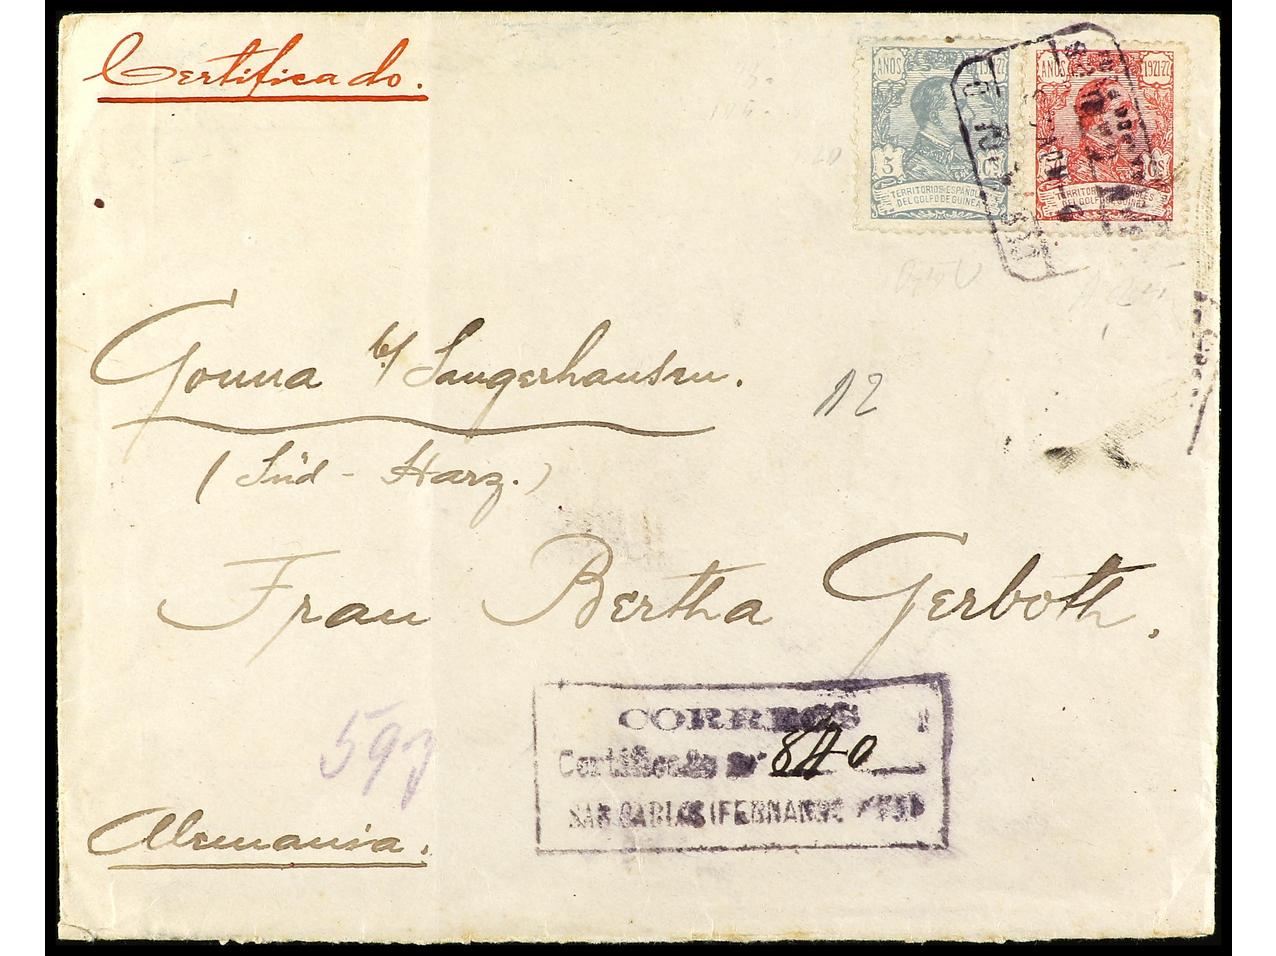 Certificado.
AÑOS 1921-22
5 Cs
TERRITORIOS ESPAÑOLES
DEL GOLFO DE GUINEA
AÑOS 1921-22
Cs
TERRITORIOS ESPAÑOLES
DEL GOLFO DE GUINEA
Gonna b/ Sangerhausen.
12
(Süd-Harz.)
Frau Bertha Gerboth.
CORREOS
Certificado Nº 840
SAN CARLOS (FERNANDO POO)
593
Alemania.